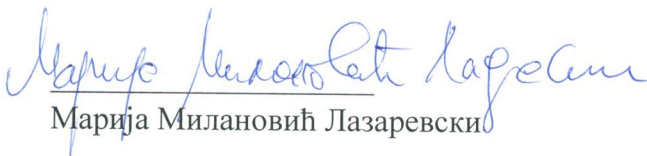 Марија Милановић Лазаревски
Марија Милановић Лазаревски